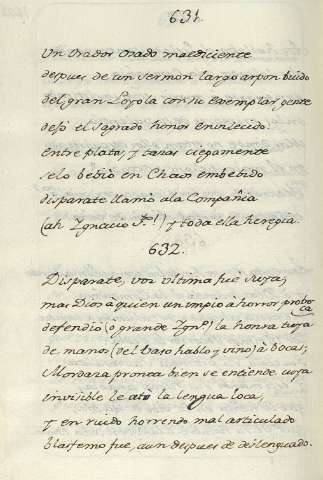 631.
Un Orador Osado maediciente
despues de un sermon largo arpon buido
del gran Loyola con su exemplar gente
dejó el sagrado honor envilecido:
Entre platos, y tazas ciegamente
se lo bebiò en Chaos embebido
disparate llamò a la Compañia
(ah Ygnacio Sto!) y toda ella heregia.
632.
Disparate, voz ultima fuè suya;
mas Dios à quien un impio à horror proboca
defendiò (ò grande Ygno) la honra tuya
de manos (del vaso hablo y vino) à bocas;
Mordaza pronta bien se entiende cuya
invisible le atò la lengua loca,
y en ruido horrendo mal articulado
blasfemo fue, aun despues de deslenguado.